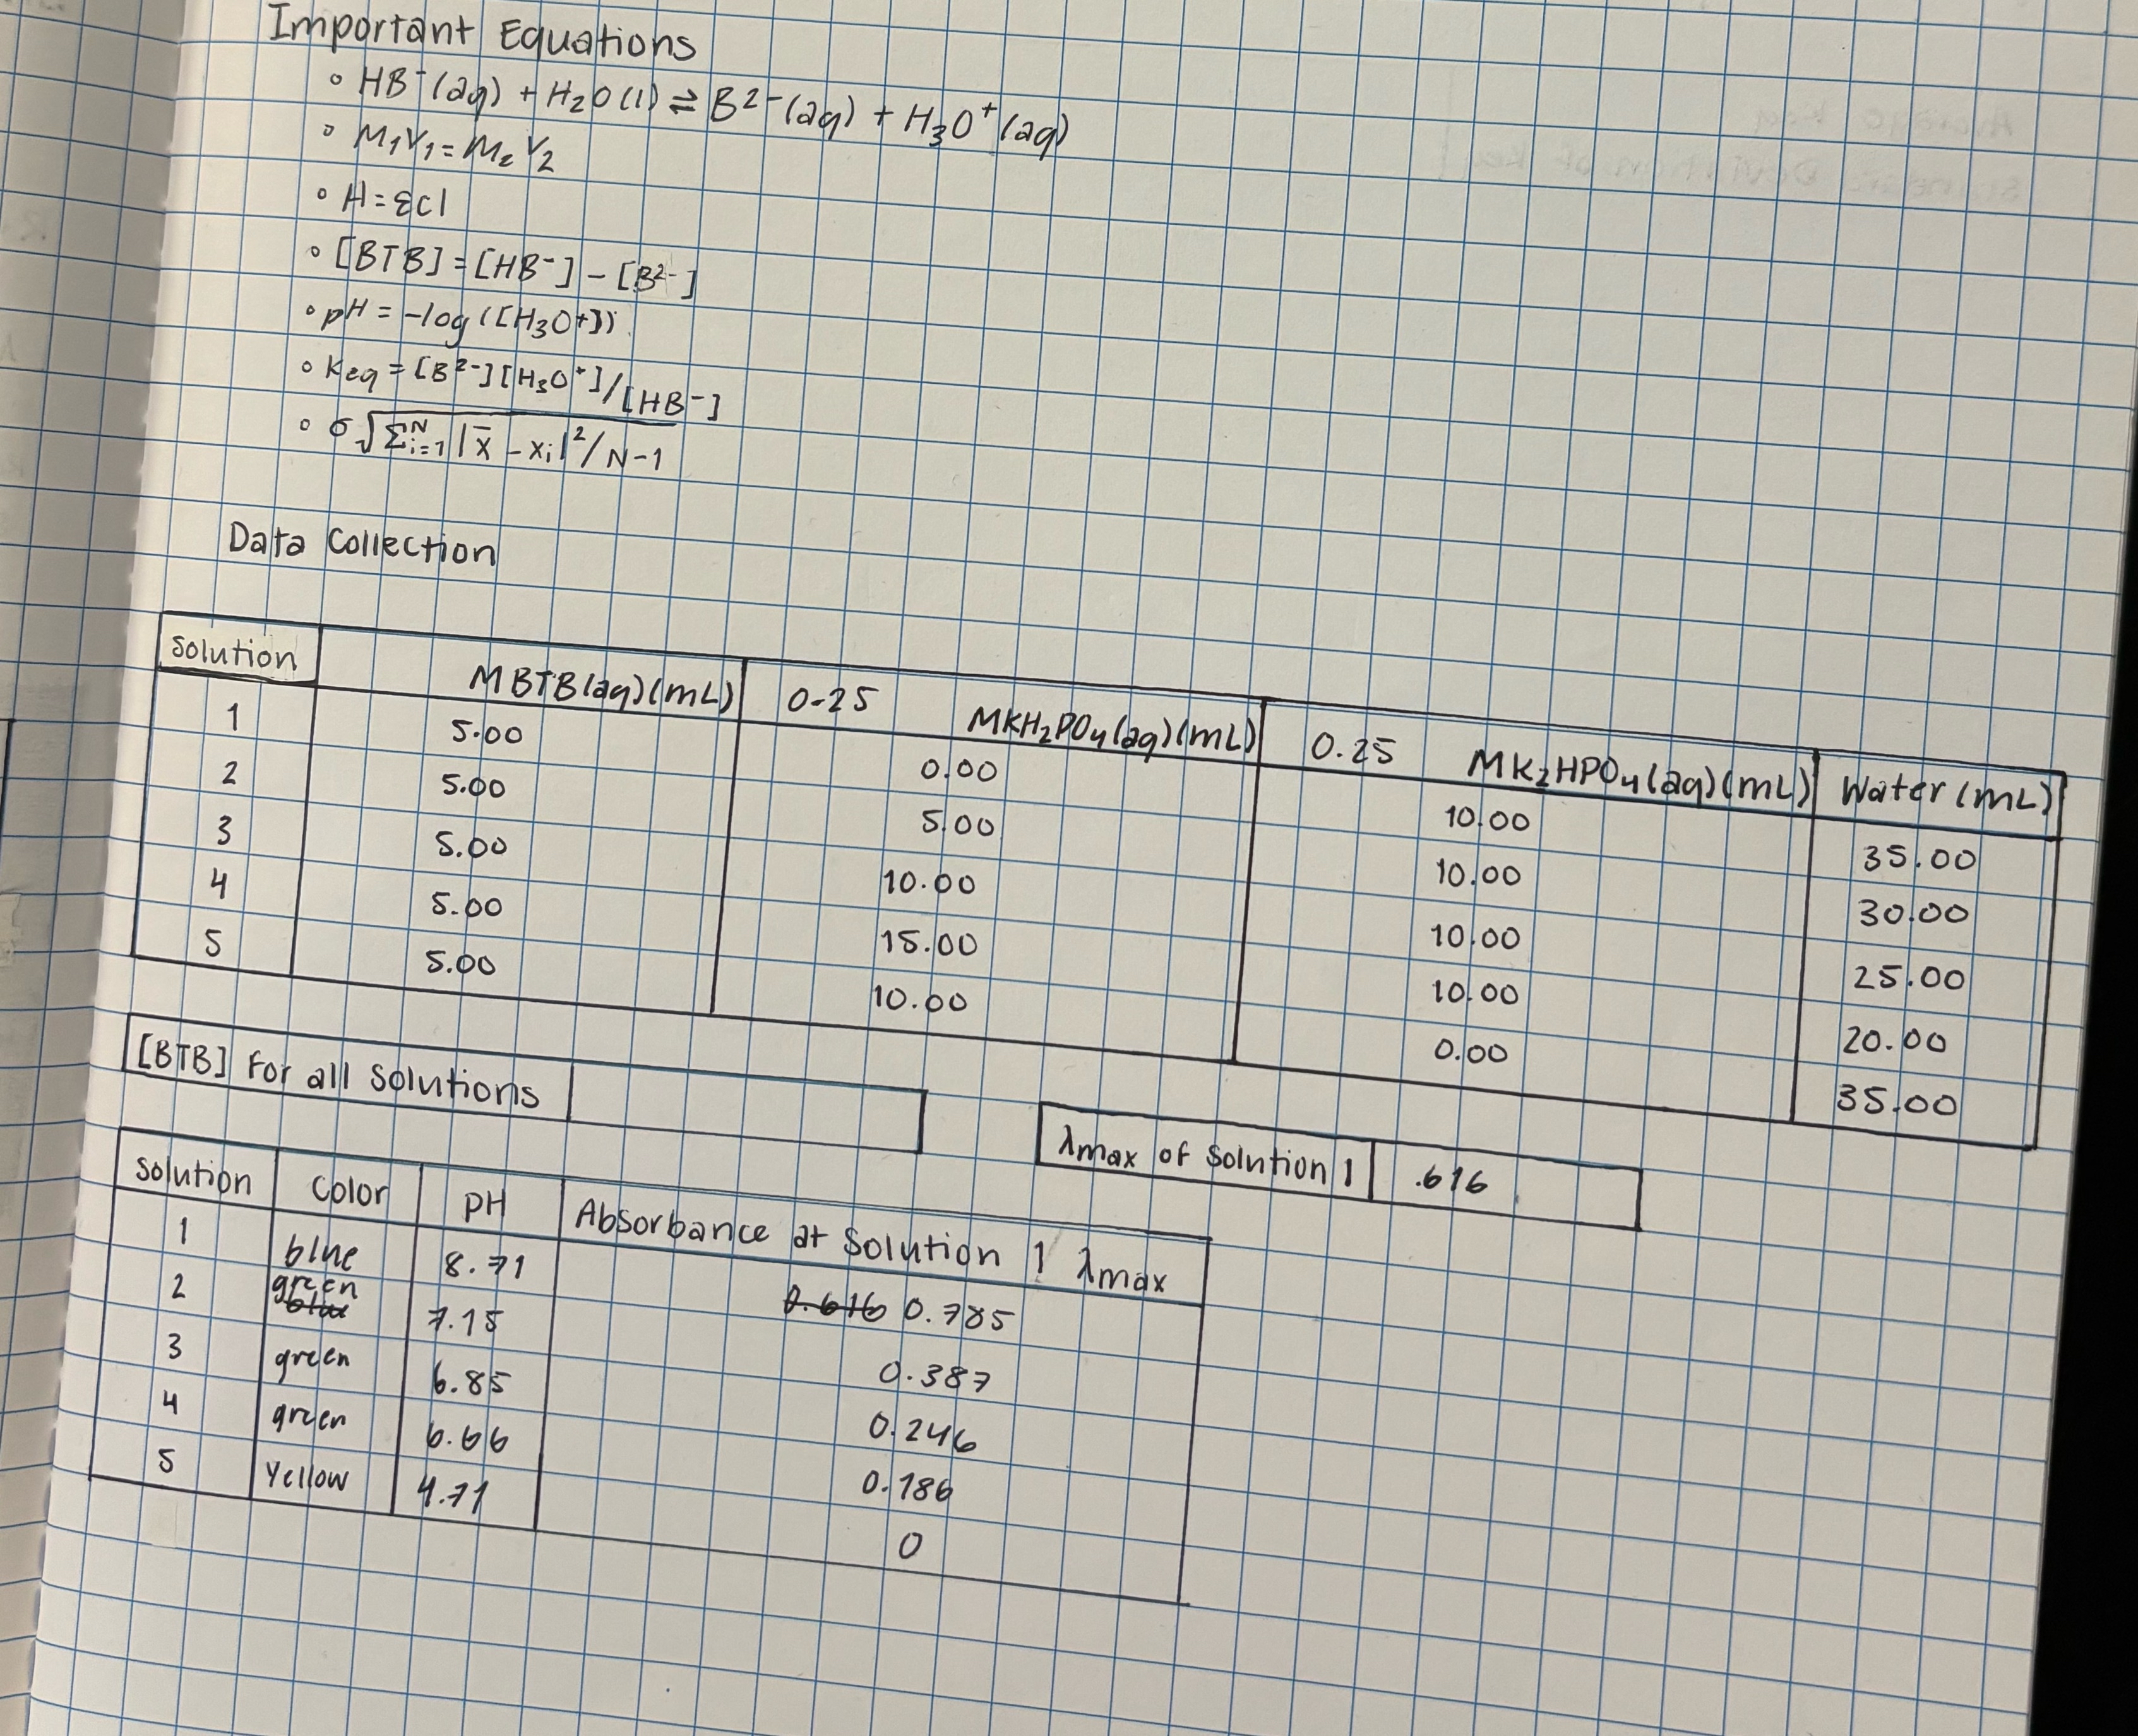 Important Equations
◦ HB⁻(aq) + H₂O(l) ⇌ B²⁻(aq) + H₃O⁺(aq)
◦ M₁V₁ = M₂V₂
◦ A = εcl
◦ [BTB] = [HB⁻] – [B²⁻]
◦ pH = -log([H₃O⁺])
◦ Keq = [B²⁻][H₃O⁺]/[HB⁻]
◦ σ√Σᵢ₌₁ᴺ |x̄ - xᵢ|²/N-1
Data Collection
Solution MBTB(aq)(mL) 0.25 MKH₂PO₄(aq)(mL) 0.25 MK₂HPO₄(aq)(mL) Water (mL)
1 5.00 0.00 10.00 35.00
2 5.00 5.00 10.00 30.00
3 5.00 10.00 10.00 25.00
4 5.00 15.00 10.00 20.00
5 5.00 10.00 0.00 35.00
[BTB] For all Solutions
λmax of Solution 1 .616
Solution Color pH Absorbance at Solution 1 λmax
1 blue 8.71 0.616 0.785
2 green blue 7.15 0.387
3 green 6.85 0.246
4 green 6.66 0.186
5 Yellow 4.71 0